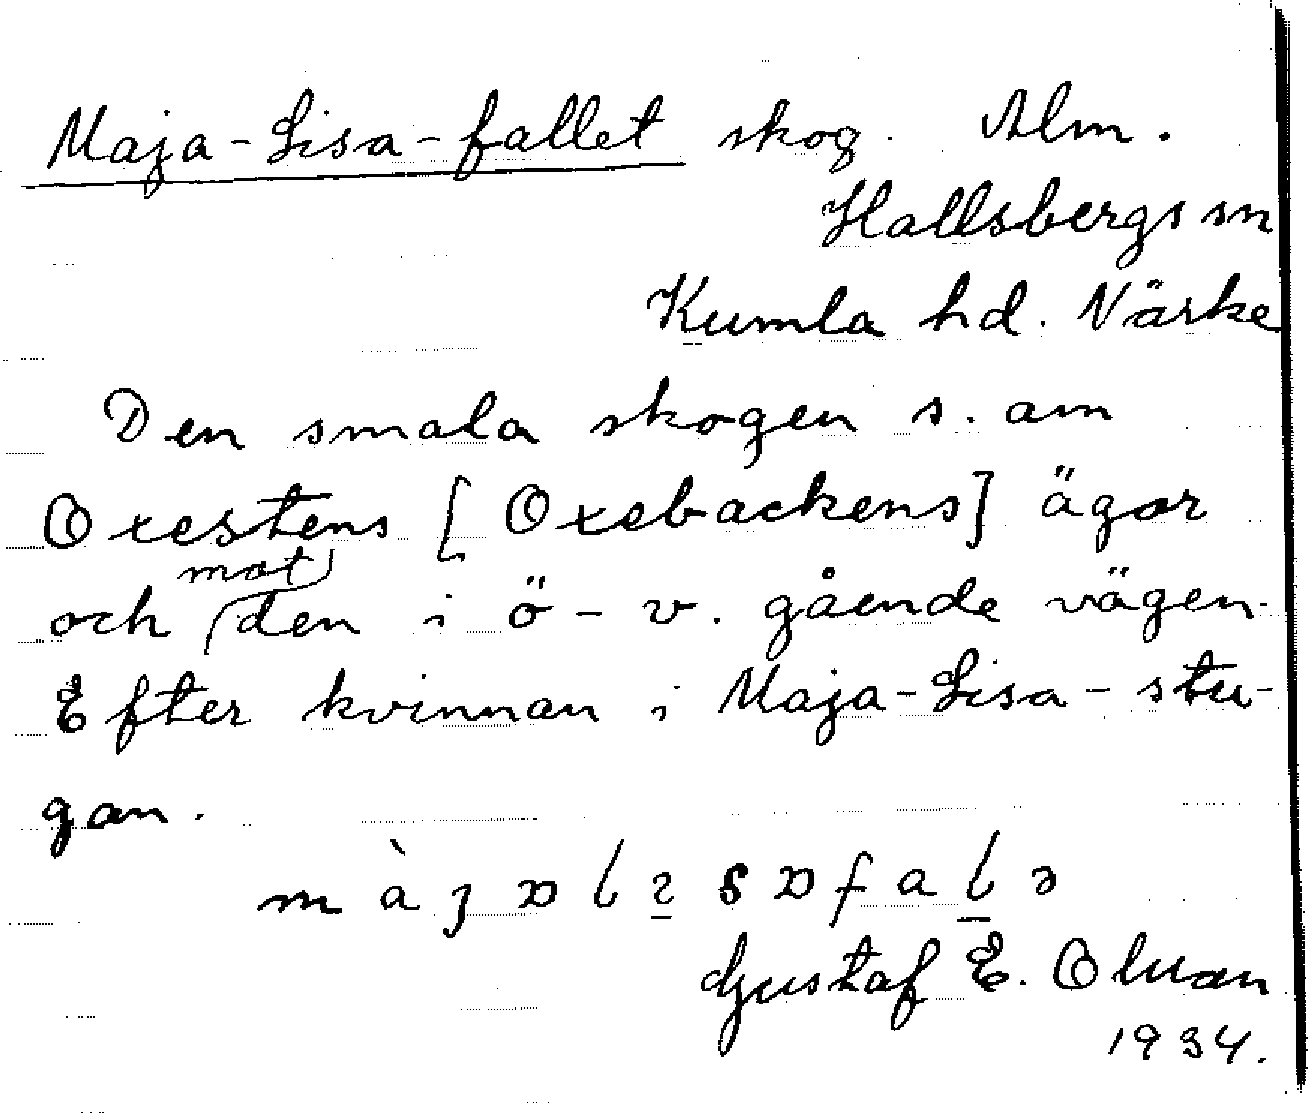 Maja-Lisa-fallet skog. Alm.
Hallsbergs sn
Kumla hd. Närke
Den smala skogen s. om
Oxestens [Oxebackens] ägor
och mot den i ö-v. gående vägen.
Efter kvinnan i Maja-Lisa-stu-
gan.
Gustaf E. Olsson
1934.